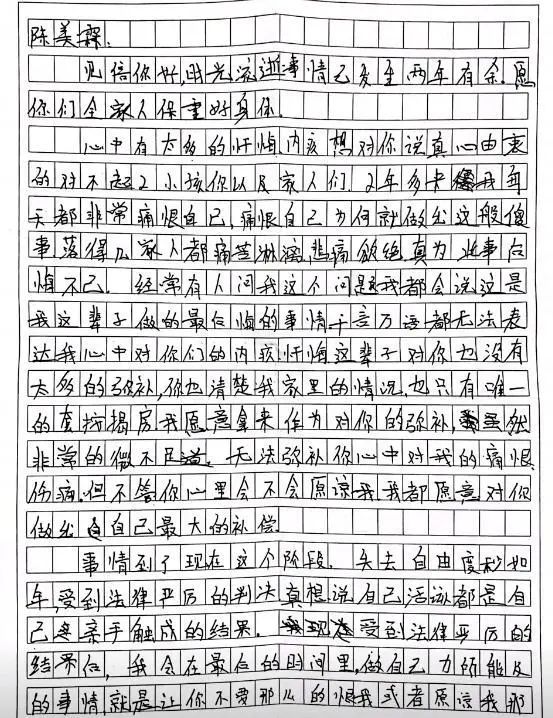 陈美霖.
见信你好,时光流逝事情已发生两年有余.愿
你们全家人保重好身体.
心中有太多的忏悔内疚想对你说真心由衷
的对不起2小孩你以及家人们.2年多来我每
天都非常痛恨自己,痛恨自己为何就做出这般傻
事.落得几家人都痛苦淋漓,悲痛欲绝真为此事后
悔不已.经常有人问我这个问题我都会说这是
我这辈子做的最后悔的事情千言万语都无法表
达我心中对你们的内疚忏悔这辈子对你也没有
太多的弥补,你也清楚我家里的情况.也只有唯一
的套按揭房我愿意拿来作为对你的弥补,虽然
非常的微不足道.无法弥补你心中对我的痛恨
伤痛.但不管你心里会不会原谅我我都愿意对你
做出自己最大的补偿.
事情到了现在这个阶段.失去自由度秒如
年,受到法律严厉的判决真想说自己活该都是自
己亲手触成的结果.受到法律严厉的
结果后,我会在最后的时间里,做自己力所能及
的事情,就是让你不要那么的恨我或者原谅我那